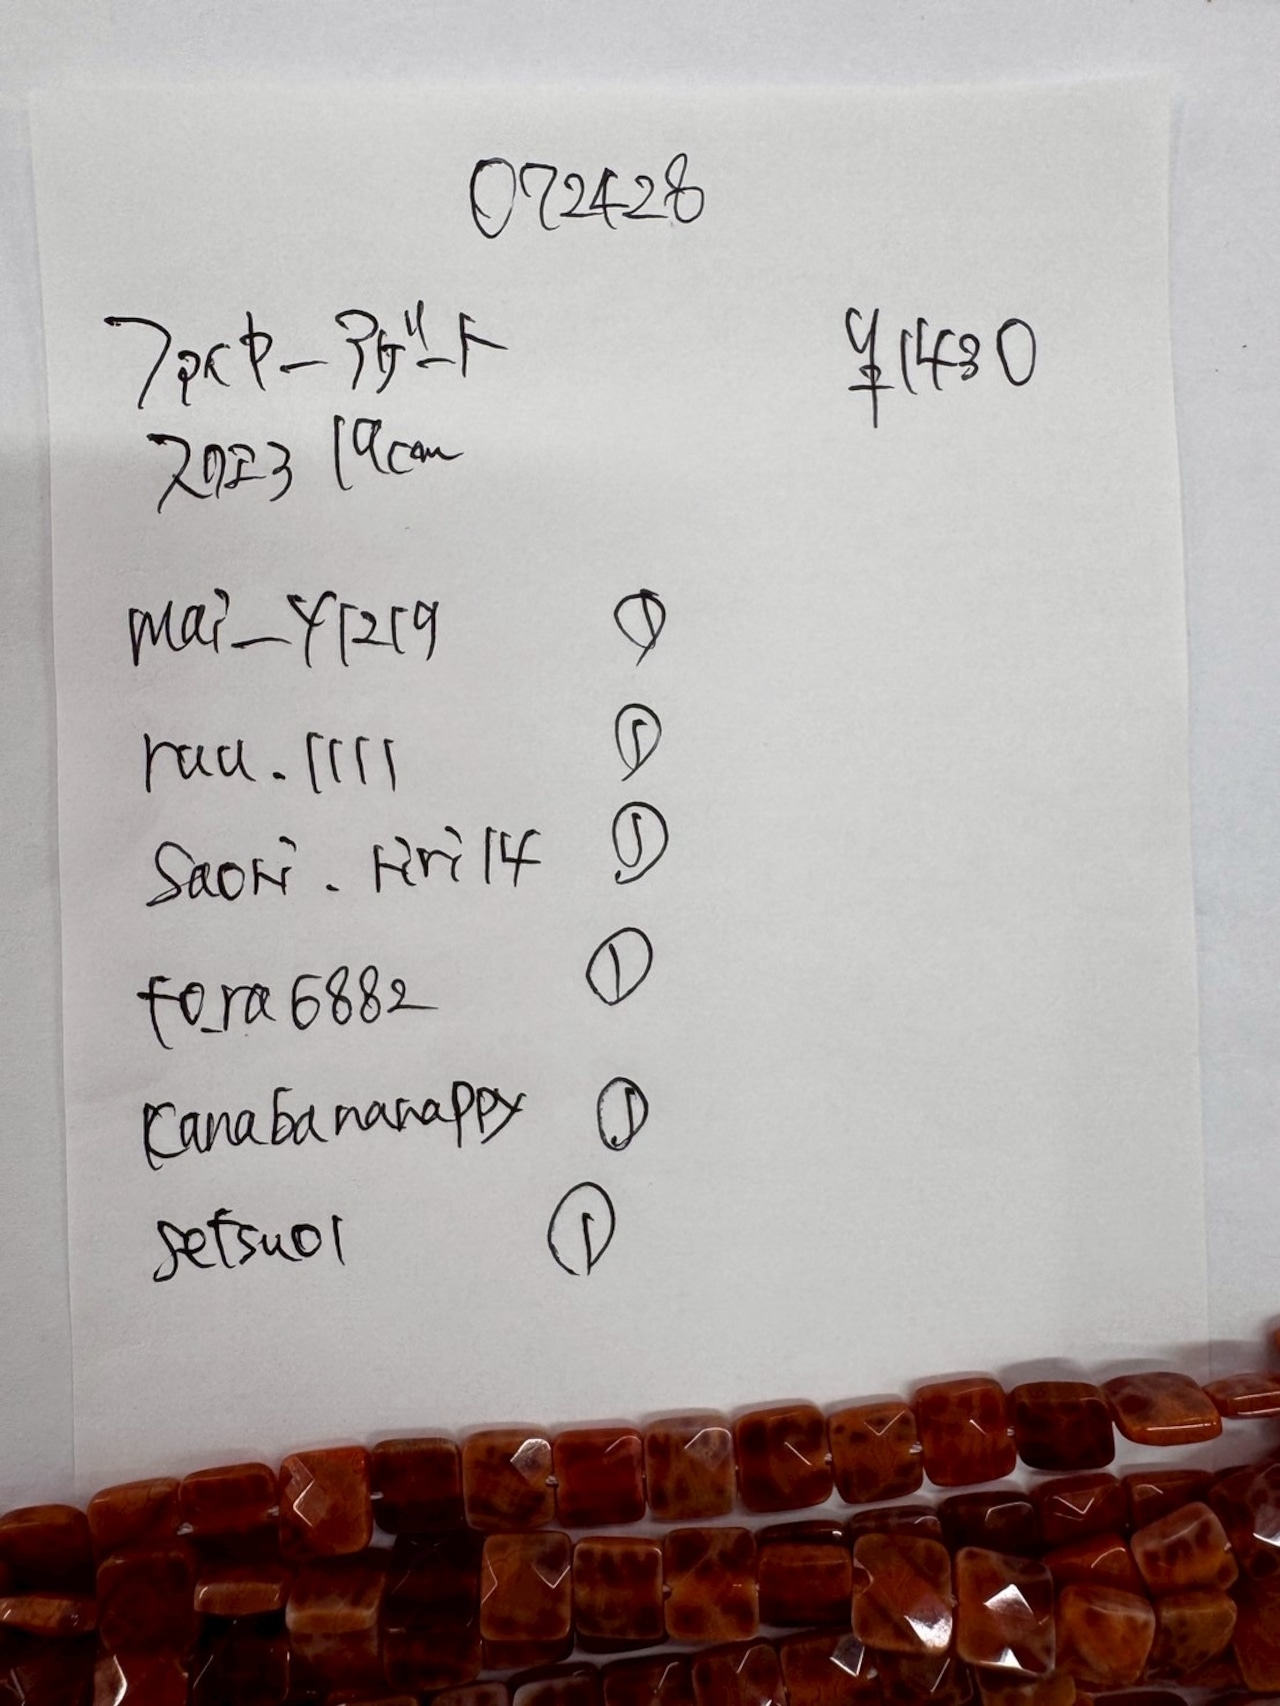 072428
ファイヤーアゲート ¥1430
スクエア 19cm
mai_y1219 ①
ruu.1111 ①
saori.riri14 ①
to_ra6882 ①
kanabananappy ①
setsu01 ①